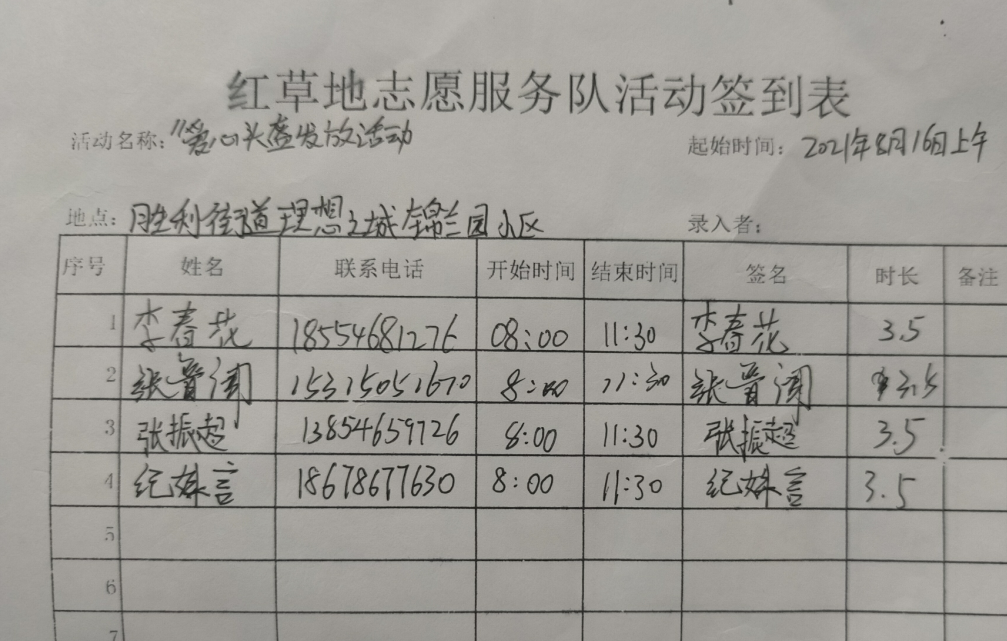 红草地志愿服务队活动签到表
活动名称：“爱心头盔发放活动 起始时间：2021年8月16日上午
地点：胜利街道理想之城锦兰园小区 录入者：
序号 姓名 联系电话 开始时间 结束时间 签名 时长 备注
1 李春花 18554681276 08:00 11:30 李春花 3.5
2 张 15315051670 8:00 11:30 张 3.5
3 张振超 13854659726 8:00 11:30 张振超 3.5
4 纪姝言 18678677630 8:00 11:30 纪姝言 3.5
5
6
7